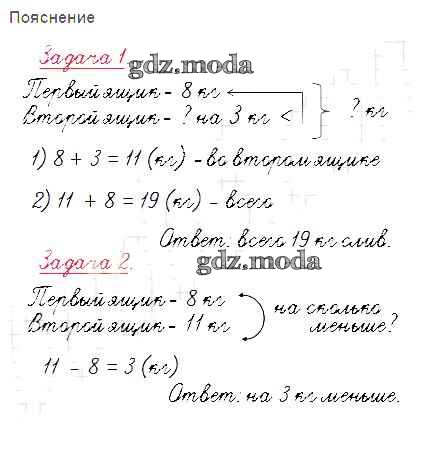 Пояснение
Задача 1
gdz.moda
Первый ящик - 8 кг
Второй ящик - ? на 3 кг <
? кг
1) 8 + 3 = 11 (кг) - во втором ящике
2) 11 + 8 = 19 (кг) - всего
Ответ: всего 19 кг слив.
Задача 2.
gdz.moda
Первый ящик - 8 кг
Второй ящик - 11 кг
на сколько
меньше?
11 - 8 = 3 (кг)
Ответ: на 3 кг меньше.